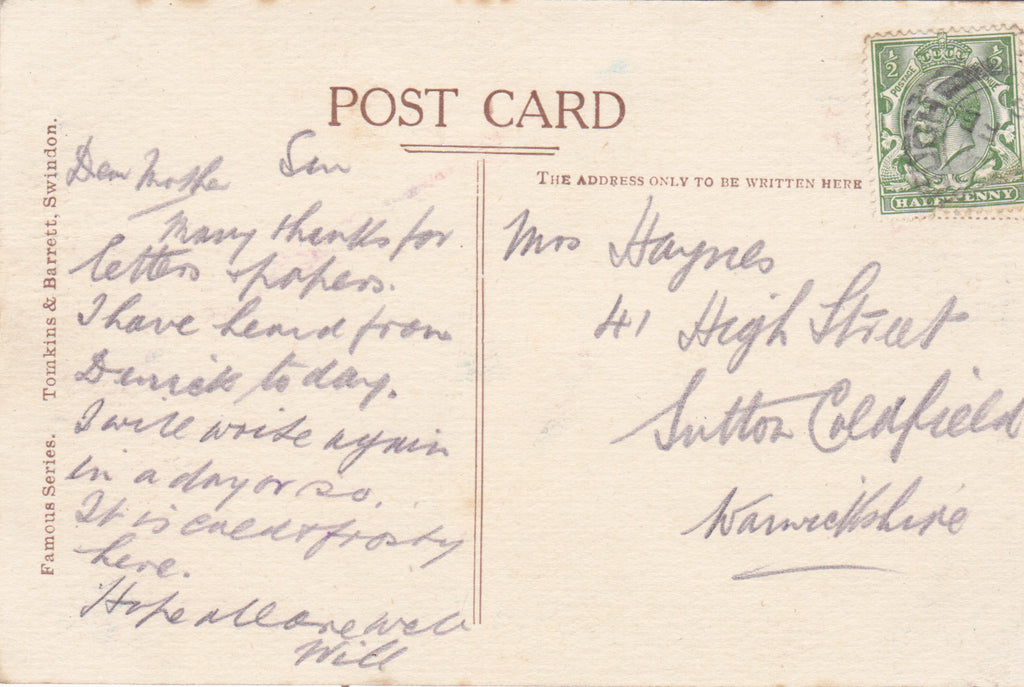 POST CARD
Famous Series. Tomkins & Barrett, Swindon.
THE ADDRESS ONLY TO BE WRITTEN HERE
1/2 1/2
POSTAGE
HALFPENNY
Sun
Dear Mother
Many thanks for
letters & papers.
I have heard from
Derrick to day.
I will write again
in a day or so.
It is cold & frosty
here.
Hope all are well
Will
Mrs Haynes
41 High Street
Sutton Coldfield
Warwickshire